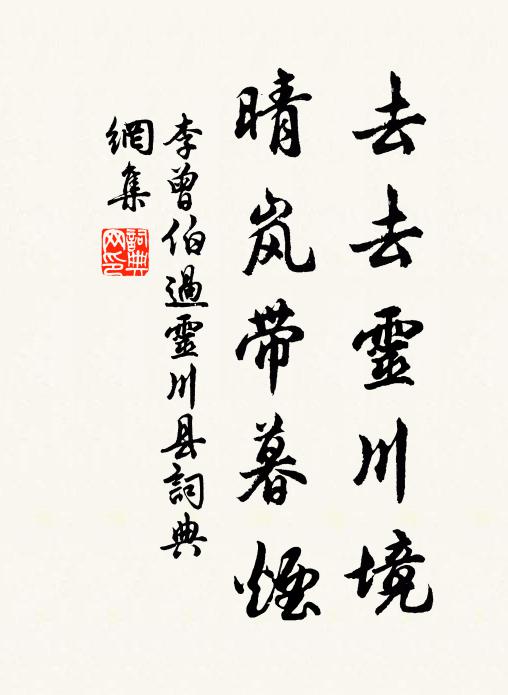 去去靈川境
晴岚带暮煙
李曾伯過靈川县詞典
網集
詞典
网印